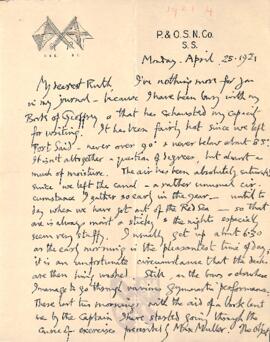 1921 4
P. & O. S. N. Co.
S. S.
Monday. April 25. 1921
My dearest Ruth
I've nothing more for you
in my journal - because I have been busy with my
Book of Geoffrey & that has exhausted my capacity
for writing. It has been fairly hot since we left
Port Said - never over 90 & never below about 85°.
It isnt altogether a question of degrees, but almost a
much of moisture. The air has been absolutely
since we left the canal - a rather unusual cir-
cumstance I gather so early in the year - until to-
day when we have got out of the Red Sea - so that
one is always moist & sticky & the nights especially
seem very stuffy. I usually get up about 6.30
as the early morning is the pleasantest time of day;
it is an unfortunate circumstance that the decks
are then being washed. Still in the bows or elsewhere
I manage to go through various gymnastic performances.
These last this morning with the aid of a book lent
me by the Captain I have started going through the
course of exercises prescribed by Max Muller. The